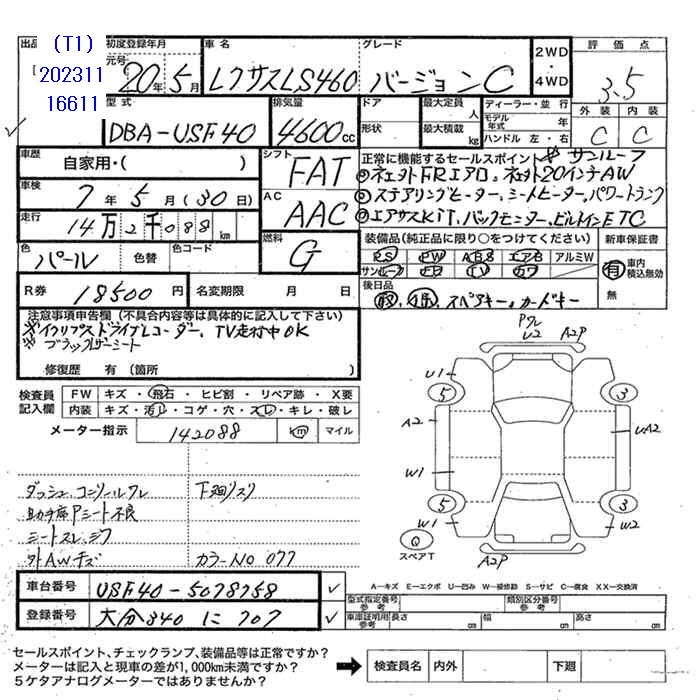 (T1)
202311
16611
出品
初度登録年月
元号
20年5月
車名
レクサスLS460
グレード
バージョンC
2WD
・
4WD
評価点
3.5
外装 内装
C C
型式
DBA-USF40
排気量
4600cc
ドア
形状
最大定員 人
最大積載 kg
ディーラー・並行
モデル年式 年
ハンドル 左・右
車歴
自家用・( )
シフト
FAT
車検
7年5月(30日)
AC
AAC
走行
14万2千088km
色
パール
色替
色コード
燃料
G
R券
18500円
名変期限 月 日
正常に機能するセールスポイント サンルーフ
ネェットFRエアロ、ネェット20インチAW
ステアリングヒーター、シートヒーター、パワートランク
エアサスKiT、バックモニター、ビルトインETC
装備品(純正品に限り○をつけてください)
PS PW ABS エアB アルミW
サンルーフ ナビ TV カワ
新車保証書
有 車内積込無効
無
後日品
取、保、スペアキー、カードキー
注意事項申告欄(不具合内容等は具体的に記入して下さい)
※イクリプスドライブレコーダー、TV走行中OK
※ブラックレザーシート
修復歴 有(箇所 )
検査員記入欄
FW キズ・飛石・ヒビ割・リペア跡・X要
内装 キズ・汚レ・コゲ・穴・スレ・キレ・破レ
メーター指示
142088
km マイル
ダッシュ、コンソールワレ
下廻リスリ
助手席Pシート不良
シートスレ、シワ
外AWキズ
カラーNO 077
Pワレ
U2 A2P
U1
5
3
A2
UA2
W1
5
3
W1
W2
Q
スペアT
A2P
A-キズ E-エクボ U-凹み W-補修跡 S-サビ C-腐食 XX-交換済
車台番号
USF40-5078758
登録番号
大分340 に 707
型式指定番号 参考
類別区分番号 参考
車庫証明用 参考 長さ 幅 高さ
セールスポイント、チェックランプ、装備品等は正常ですか?
メーターは記入と現車の差が1,000km未満ですか?
5ケタアナログメーターではありませんか?
検査員名 内外 下廻